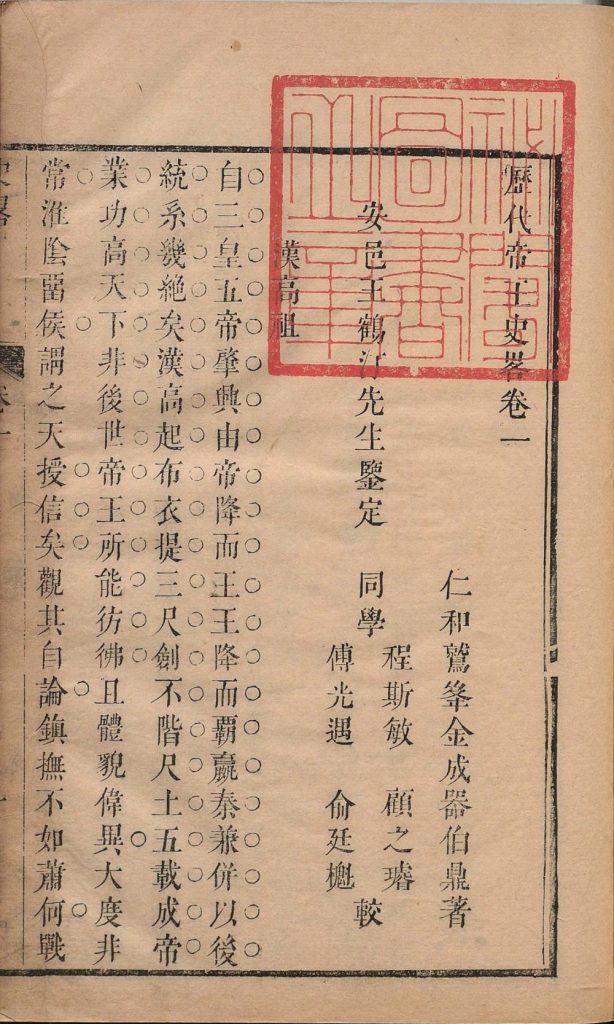 歷代帝王史畧卷一
仁和鷲峯金成器伯鼎著
安邑王鶴汀先生鑒定 同學 程斯敏 顧之璿
傅光遇 俞廷櫆 較
漢高祖
自三皇五帝肇興由帝降而王王降而覇嬴秦兼併以後
統系幾絶矣漢高起布衣提三尺劍不階尺土五載成帝
業功高天下非後世帝王所能彷彿且體貌偉異大度非
常淮陰畱侯謂之天授信矣觀其自論鎮撫不如蕭何戰
史畧 卷一 一
秘閣
圖書
之章